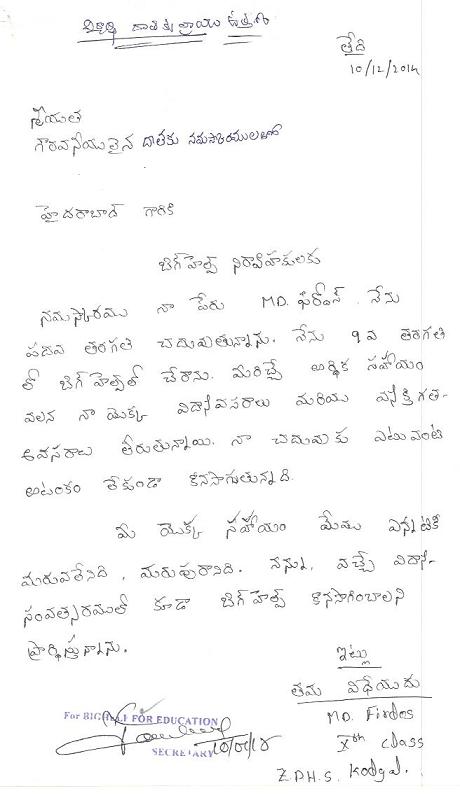 విద్యార్థి దాతకు వ్రాయు ఉత్తరం
తేది
10/12/2014
శ్రీయుత
గౌరవనీయులైన దాతకు నమస్కారములతో
హైదరాబాద్ గారికి
బిగ్‌హెల్ప్ నిర్వాహకులకు
నమస్కారము నా పేరు MD. ఫిర్‌దోస్. నేను
పదవ తరగతి చదువుతున్నాను. నేను 9వ తరగతి
లో బిగ్‌హెల్ప్‌లో చేరాను. మీరిచ్చే ఆర్థిక సహాయం
వలన నా యొక్క విద్యావసరాలు మరియు వ్యక్తిగత-
అవసరాలు తీరుతున్నాయి. నా చదువుకు ఎటువంటి
ఆటంకం లేకుండా కొనసాగుతున్నది.
మీ యొక్క సహాయం మేము ఎన్నటికీ
మరువలేనిది, మరుపురానిది. నన్ను, వచ్చే విద్యా-
సంవత్సరములో కూడా బిగ్‌హెల్ప్ కొనసాగించాలని
ప్రార్థిస్తున్నాను.
ఇట్లు
తమ విధేయుడు
MD. Firdos
Xth class
Z.P.H.S. Kodgal.
For BIGHELP FOR EDUCATION
SECRETARY